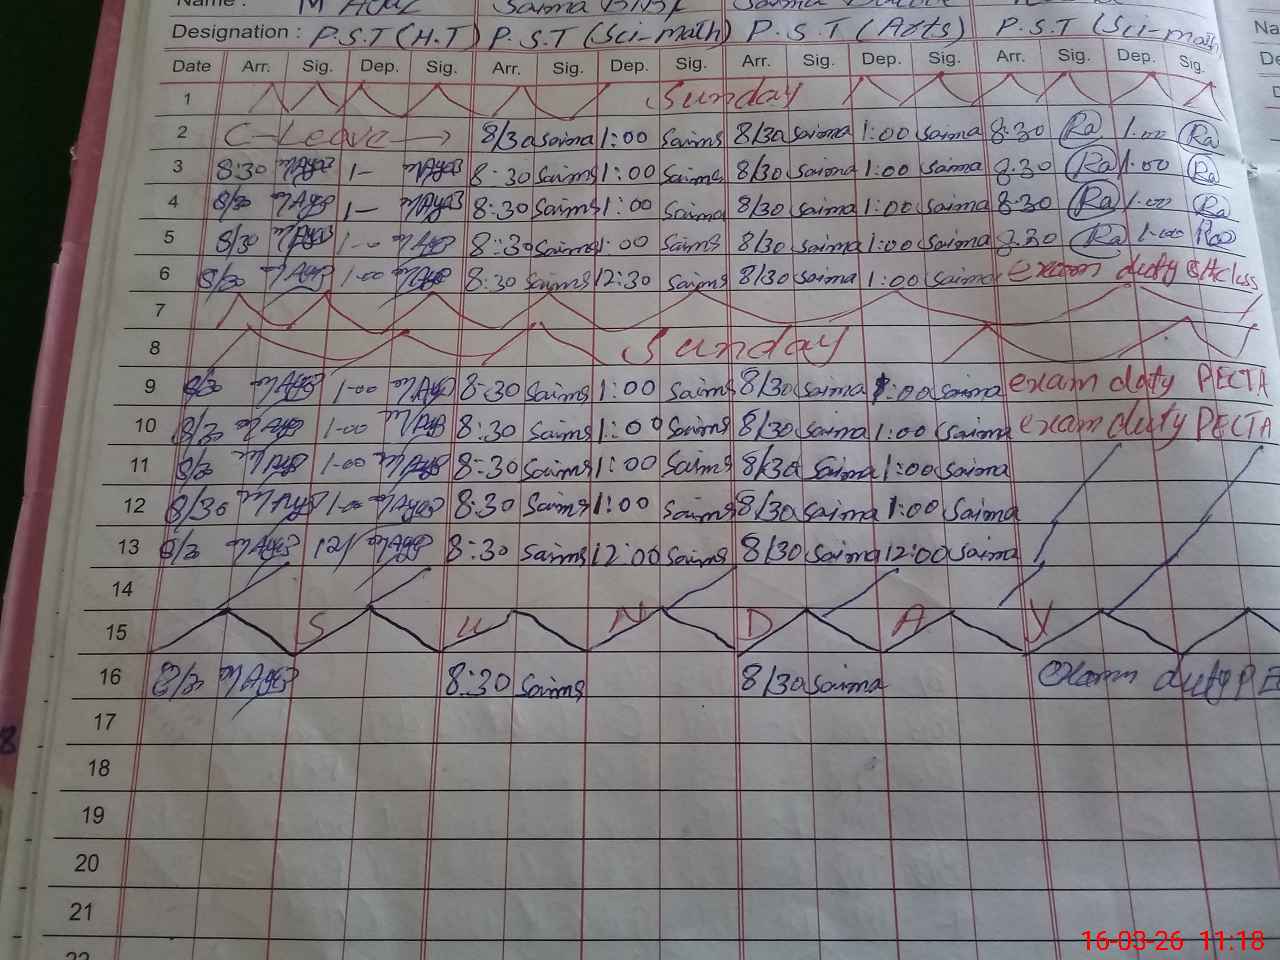 Name : Saima Bibi Saima
Designation : P.S.T (H.T) P.S.T (Sci-math) P.S.T (Arts) P.S.T (Sci-math)
Date Arr. Sig. Dep. Sig. Arr. Sig. Dep. Sig. Arr. Sig. Dep. Sig. Arr. Sig. Dep. Sig.
1 Sunday
2 C-Leave → 8/30 Saima 1:00 Saima 8/30 Saima 1:00 Saima 8:30 Ra 1:00 Ra
3 8:30 1- 8:30 Saima 1:00 Saima 8/30 Saima 1:00 Saima 8:30 Ra 1:00 Ra
4 8/30 1- 8:30 Saima 1:00 Saima 8/30 Saima 1:00 Saima 8:30 Ra 1:00 Ra
5 8/30 1-00 8:30 Saima 1:00 Saima 8/30 Saima 1:00 Saima 8:30 Ra 1:00 Ra
6 8/30 1-00 8:30 Saima 12:30 Saima 8/30 Saima 1:00 Saima exam duty 8th class
7
8 Sunday
9 8/30 1-00 8:30 Saima 1:00 Saima 8/30 Saima 1:00 Saima exam duty PECTA
10 8/30 1-00 8:30 Saima 1:00 Saima 8/30 Saima 1:00 Saima exam duty PECTA
11 8/30 1-00 8:30 Saima 1:00 Saima 8/30 Saima 1:00 Saima
12 8/30 1-00 8:30 Saima 1:00 Saima 8/30 Saima 1:00 Saima
13 8/30 12/ 8:30 Saima 12:00 Saima 8/30 Saima 12:00 Saima
14
15 S U N D A Y
16 8/30 8:30 Saima 8/30 Saima exam duty PE
17
18
19
20
21
22
16-03-26 11:18